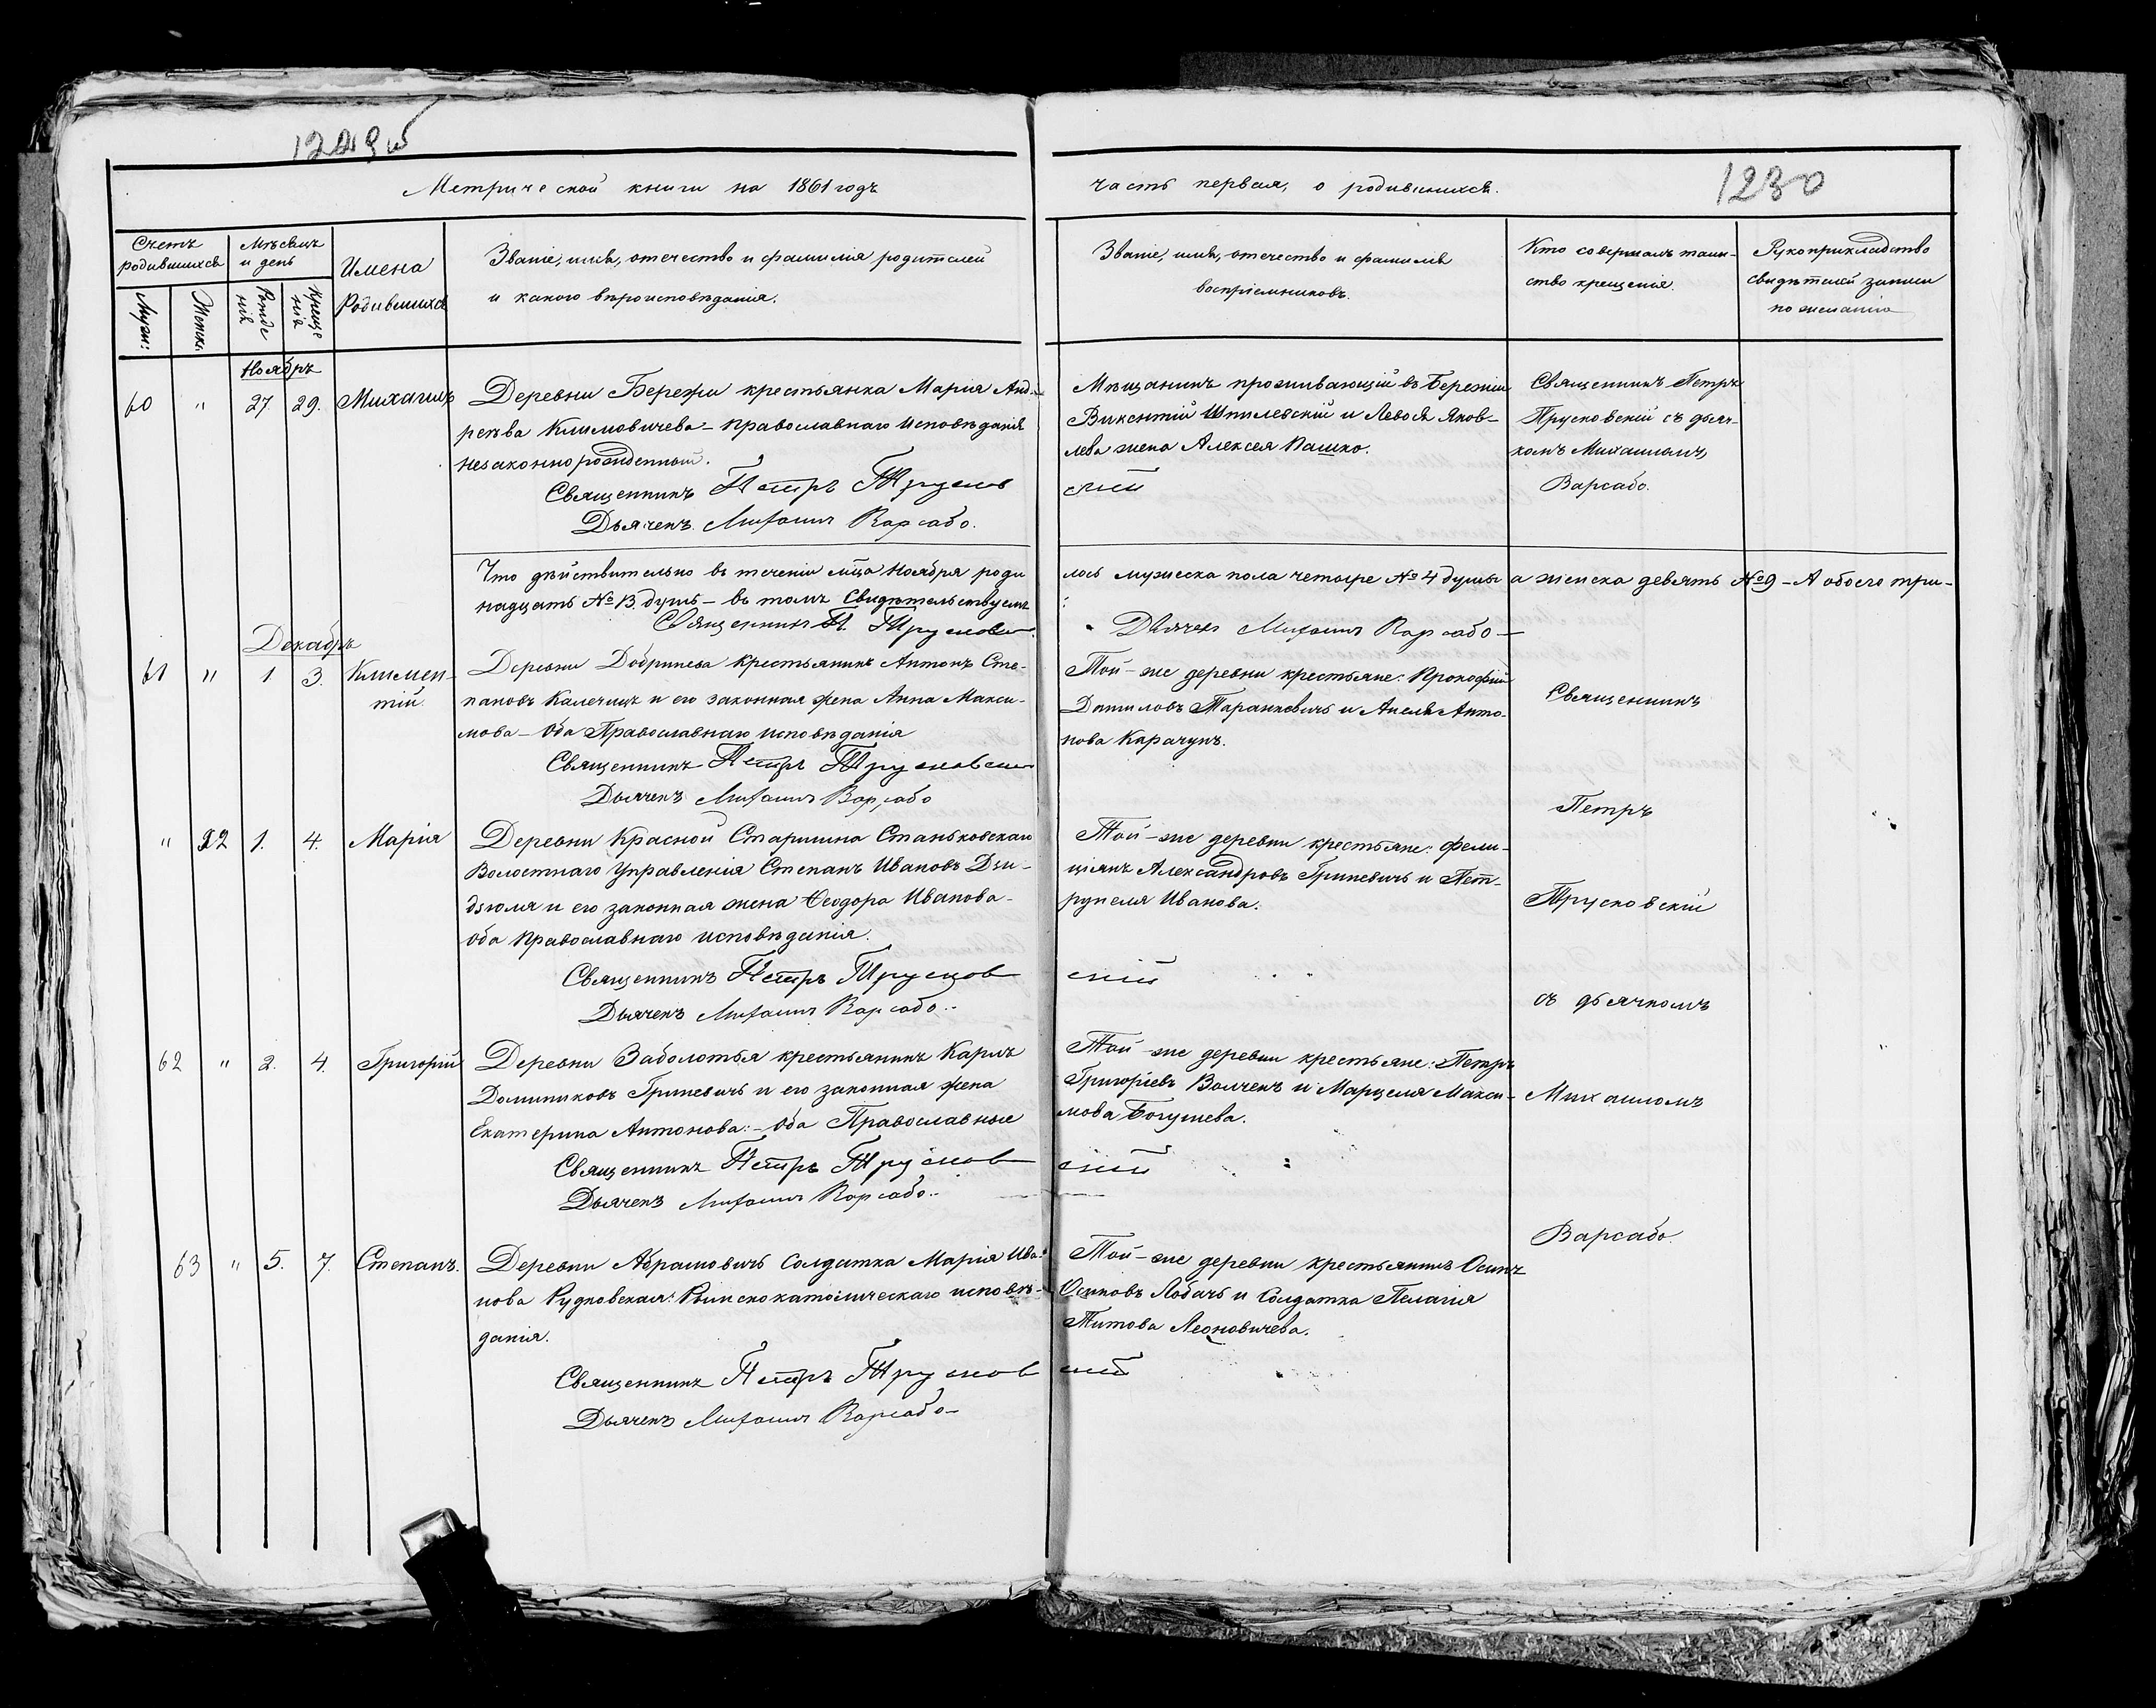 1229 об
1230
Метрической книги на 1861 годъ
часть первая, о родившихся.
Счетъ родившихся
Мѣсяцъ и день
Имена Родившихся
Званіе, имя, отечество и фамилія родителей
и какого вѣроисповѣданія.
Званіе, имя, отечество и фамилія
воспріемниковъ.
Кто совершалъ таин-
ство крещенія.
Рукоприкладство
свидѣтелей записи
по желанію
Муж:
Женс.
Рожде
нія
Креще
нія
Ноябрь
60 " 27. 29. Михаилъ
Деревни Бережи крестьянка Марія Анд-
реева Климовичева – православнаго исповѣданія
незаконнорожденный.
Священникъ Петръ Трусков
скій
Дьячекъ Михаилъ Варсабо.
Мѣщанинъ проживающій въ Бережи
Викентій Шпилевскій и Левося Яков-
лева жена Алексея Пашко.
Священникъ Петръ
Трусковскій съ дьяч-
комъ Михаиломъ
Варсабо.
Что дѣйствительно въ теченіи мца Ноября роди
лось мужеска пола четыре № 4 души а женска девять № 9 – А обоего три-
надцать № 13. душъ – въ томъ Свидѣтельствуемъ
Священникъ П. Трусковс
Дьячекъ Михаилъ Варсабо –
Декабрь
61 " 1 3. Климен-
тій.
Деревни Добринева Крестьянинъ Антонъ Сте-
пановъ Калечицъ и его законная жена Анна Макси-
мова – Оба Православнаго исповѣданія
Священникъ Петръ Трусковски
Дьячекъ Михаилъ Варсабо
Той-же деревни крестьяне: Прокофій
Даниловъ Таранкевичъ и Анеля Анто-
нова Карачунъ.
Священникъ
Петръ
Трусковскій
съ дьячкомъ
Михаиломъ
Варсабо.
" 22 1. 4. Марія
Деревни Красной Старшина Станьковскаго
Волостнаго Управленія Степанъ Ивановъ Дзи-
дзюля и его законная жена Ѳеодора Иванова –
Оба Православнаго исповѣданія.
Священникъ Петръ Трусков
скій
Дьячекъ Михаилъ Варсабо.
Той-же деревни крестьяне: Фели-
ціянъ Александровъ Гриневичъ и Пет-
рунеля Иванова.
62 " 2. 4. Григорій
Деревни Заболотья крестьянинъ Карлъ
Доминиковъ Гриневичъ и его законная жена
Екатерина Антонова: – Оба Православные
Священникъ Петръ Трусков
скій
Дьячекъ Михаилъ Варсабо.
Той-же деревни крестьяне: Петръ
Григоріевъ Волчекъ и Марцеля Макси-
мова Богушева.
63 " 5. 7. Степанъ.
Деревни Абрамовичъ Солдатка Марія Ива-
нова Рудковская: Римскокатолическаго исповѣ-
данія.
Священникъ Петръ Трусков
скій
Дьячекъ Михаилъ Варсабо –
Той-же деревни крестьянинъ Осипъ
Осиповъ Лобачъ и Солдатка Пелагія
Титова Леоновичева.